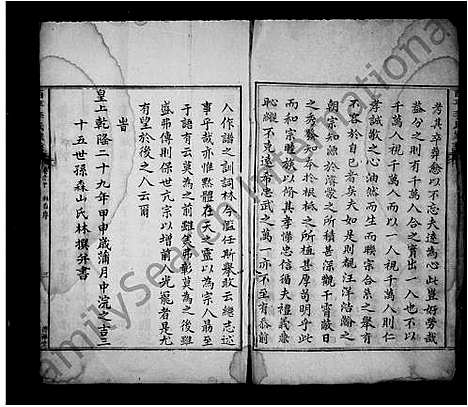 考其卒葬愈以不忘夫遠為心此豈好勞哉
蓋分之則有千萬人合之實出一人也不以
千萬人視千萬人而以一人視千萬人則仁
孝誠敬之心油然而生而聯宗合系之舉有
不容於自已者矣夫如是則觀汪洋浩瀚之
朝宗知源於濫觴之所積甚深觀干霄蔽日
之秀發知本於根柢之所植甚厚苟明乎此
而和宗睦族以脩其孝悌忠信循夫禮義廉
恥雖不克追希忠武之萬一亦不至有忝前
人作譜之訓詞林今濫任斯舉敢云繼志述
事乎哉亦惟默體存天之靈以為宗人勗至
於語有云莫為之前雖美弗彰莫為為之後雖
盛弗傳則保世亢宗以增前光罷者是尤
有望於後之人云爾
旹
皇上乾隆二十九年甲申歲蒲月中浣之吉三
十五世孫森山氏林撰并書